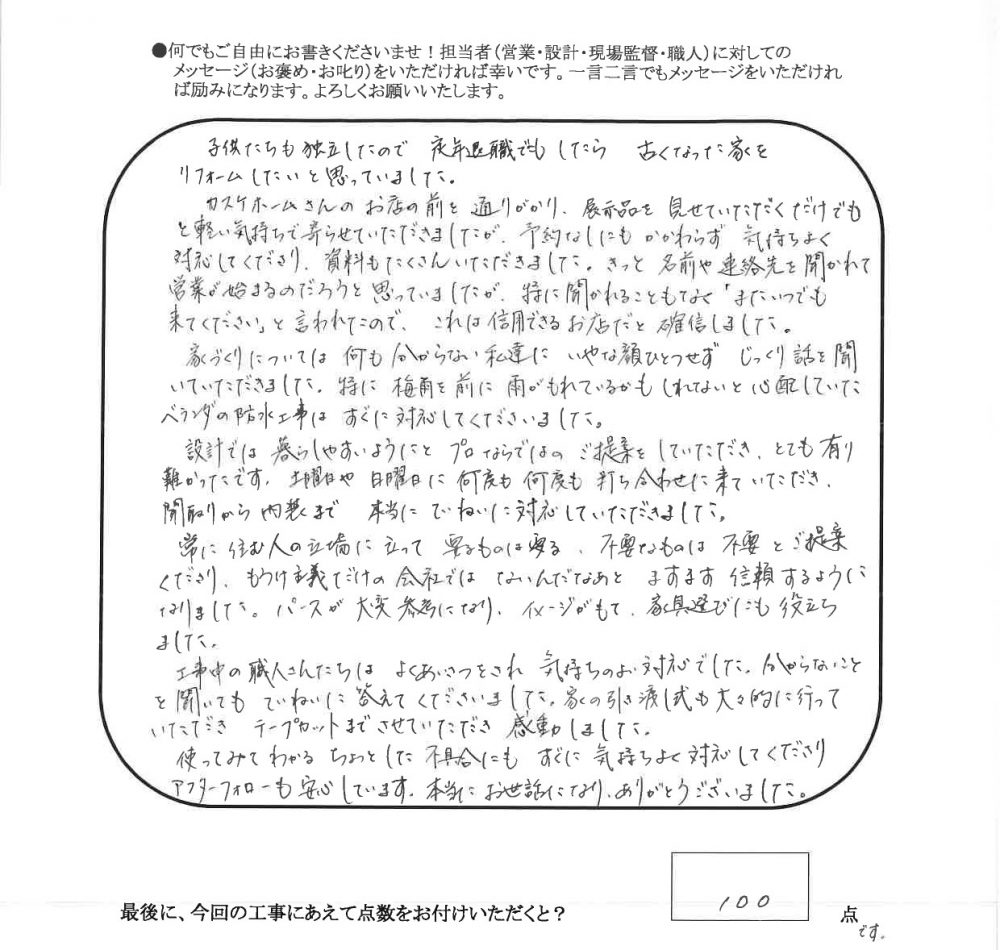 ●何でもご自由にお書きくださいませ！担当者（営業・設計・現場監督・職人）に対しての
メッセージ（お褒め・お叱り）をいただければ幸いです。一言二言でもメッセージをいただけれ
ば励みになります。よろしくお願いいたします。
子供たちも独立したので 定年退職でもしたら 古くなった家を
リフォームしたいと思っていました。
カスケホームさんのお店の前を通りがかり、展示品を見せていただくだけでも
と軽い気持ちで寄らせていただきましたが、予約なしにもかかわらず 気持ちよく
対応してくださり、資料もたくさんいただきました。きっと 名前や連絡先を聞かれて
営業が始まるのだろうと思っていましたが、特に聞かれることもなく「またいつでも
来てください」と言われたので、これは信用できるお店だと確信しました。
家づくりについては 何も分からない私達に いやな顔ひとつせず じっくり話を聞
いていただきました。特に 梅雨を前に 雨がもれているかもしれないと心配していた
ベランダの防水工事は すぐに対応してくださいました。
設計では 暮らしやすいようにと プロならではの ご提案をしていただき、とても有り
難かったです。土曜日や 日曜日に 何度も何度も 打ち合わせに来ていただき、
間取りから内装まで 本当に ていねいに対応していただきました。
常に 住む人の立場に立って 要るものは要る、不要なものは 不要とご提案
くださり、もうけ主義だけの会社では ないんだなあと ますます信頼するように
なりました。パースが 大変参考になり、イメージがもて、家具選びにも役立ち
ました。
工事中の職人さんたちは よくあいさつをされ 気持ちのよい対応でした。分からないこと
を聞いても ていねいに答えてくださいました。家の引き渡し式も大々的に行って
いただき テープカットまでさせていただき 感動しました。
使ってみてわかる ちょっとした 不具合にも すぐに 気持ちよく対応してくださり
アフターフォローも安心しています。本当に お世話になり、ありがとうございました。
最後に、今回の工事にあえて点数をお付けいただくと？ 100 点
です。